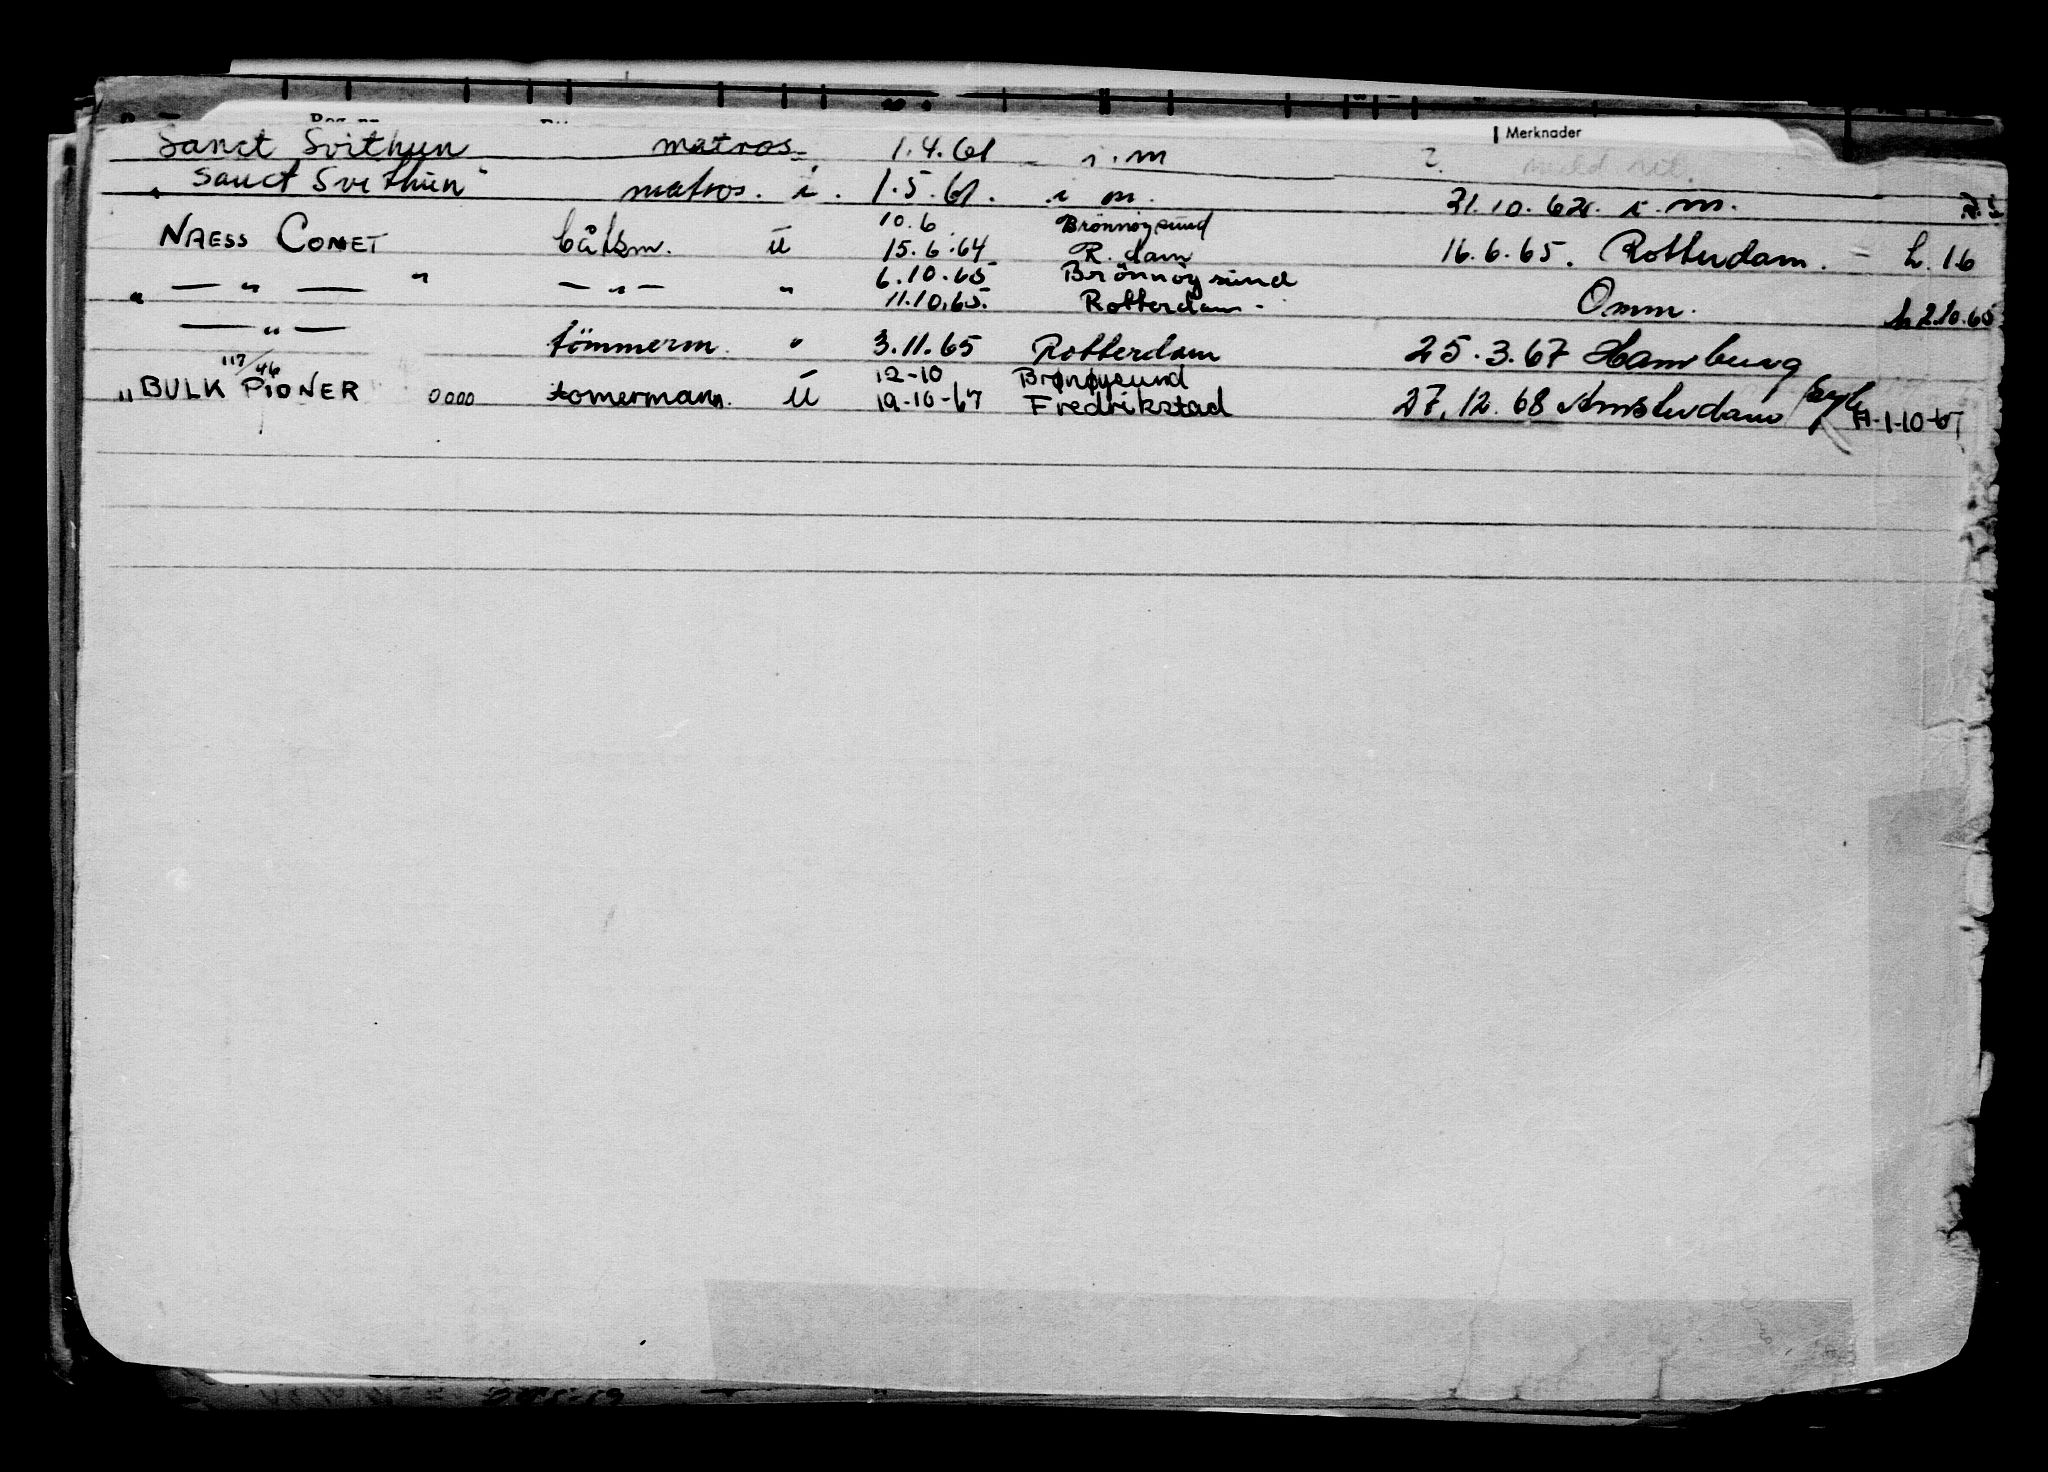 Merknader
Sanct Svithun matros 1.4.61 i.m ?
" Sanct Svithun" matros. i. 1.5.61. i m. 31.10.62. i.m.
10.6 Brönnöysund
NAESS COMET båtsm. U 15.6.64 R.dam 16.6.65. Rotterdam. - h.1.6
6.10.65 Brönnöysund
" — " — " — " — " 11.10.65. Rotterdam - Omm. h 2.10.65
— " — tömmerm. " 3.11.65 Rotterdam 25.3.67 Hamburg
117/46 12-10 Brønøysund
"BULK PIONER 0000 tomermann. U 19-10-67 Fredrikstad 27.12.68 Amsterdam A-1-10-67